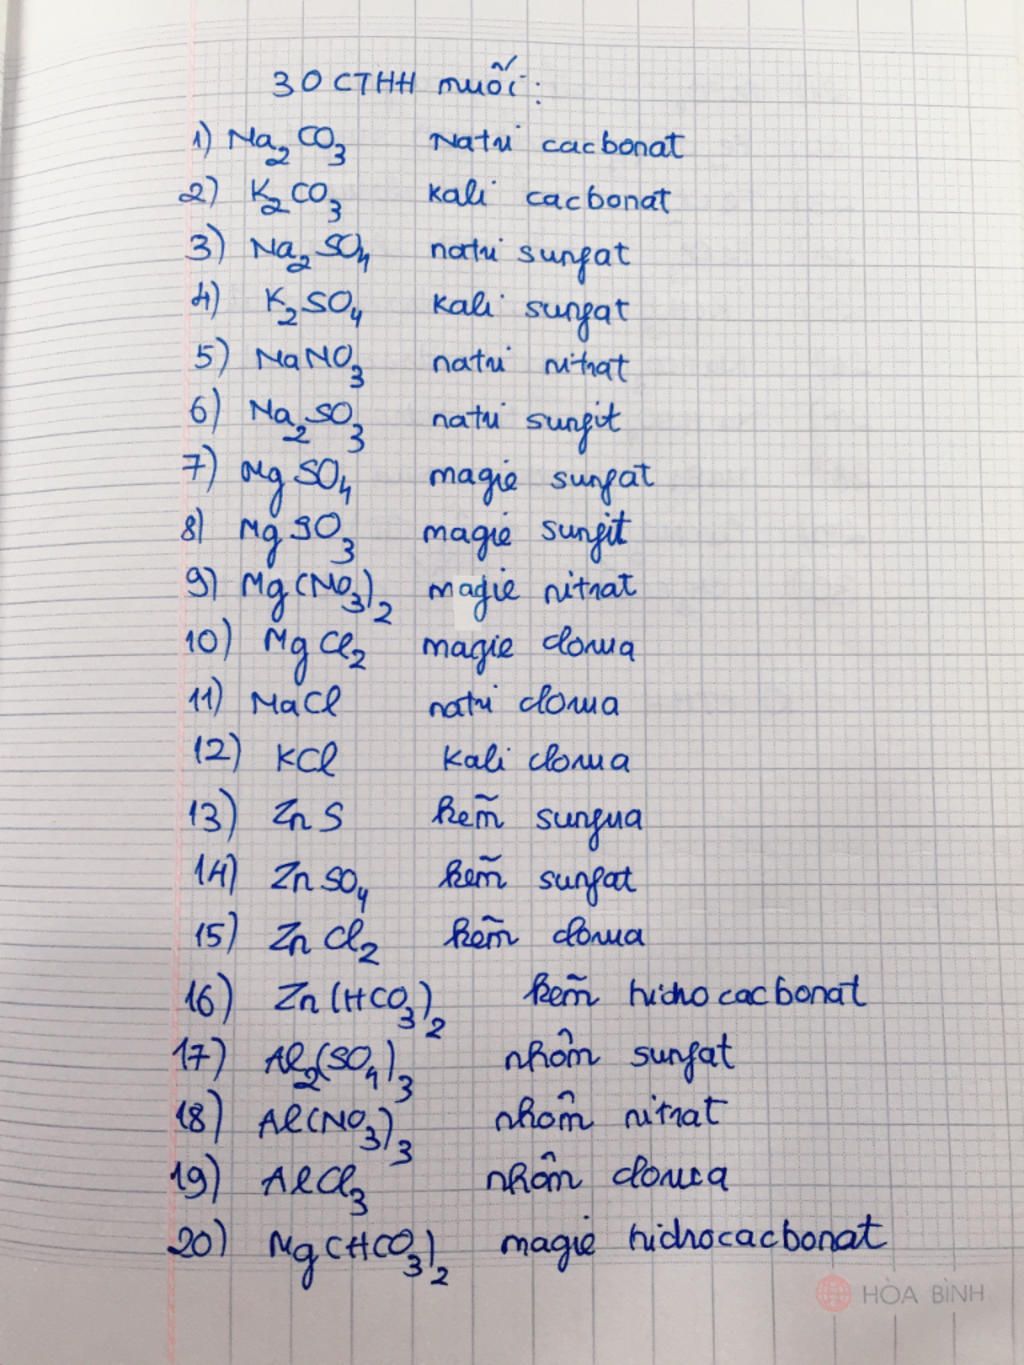 30 CTHH muối:
1) Na₂CO₃ Natri cacbonat
2) K₂CO₃ kali cacbonat
3) Na₂SO₄ natri sunfat
4) K₂SO₄ kali sunfat
5) NaNO₃ natri nitrat
6) Na₂SO₃ natri sunfit
7) MgSO₄ magie sunfat
8) MgSO₃ magie sunfit
9) Mg(NO₃)₂ magie nitrat
10) MgCl₂ magie clorua
11) NaCl natri clorua
12) KCl kali clorua
13) ZnS kẽm sunfua
14) ZnSO₄ kẽm sunfat
15) ZnCl₂ kẽm clorua
16) Zn(HCO₃)₂ kẽm hidrocacbonat
17) Al₂(SO₄)₃ nhôm sunfat
18) Al(NO₃)₃ nhôm nitrat
19) AlCl₃ nhôm clorua
20) Mg(HCO₃)₂ magie hidrocacbonat
HÒA BÌNH